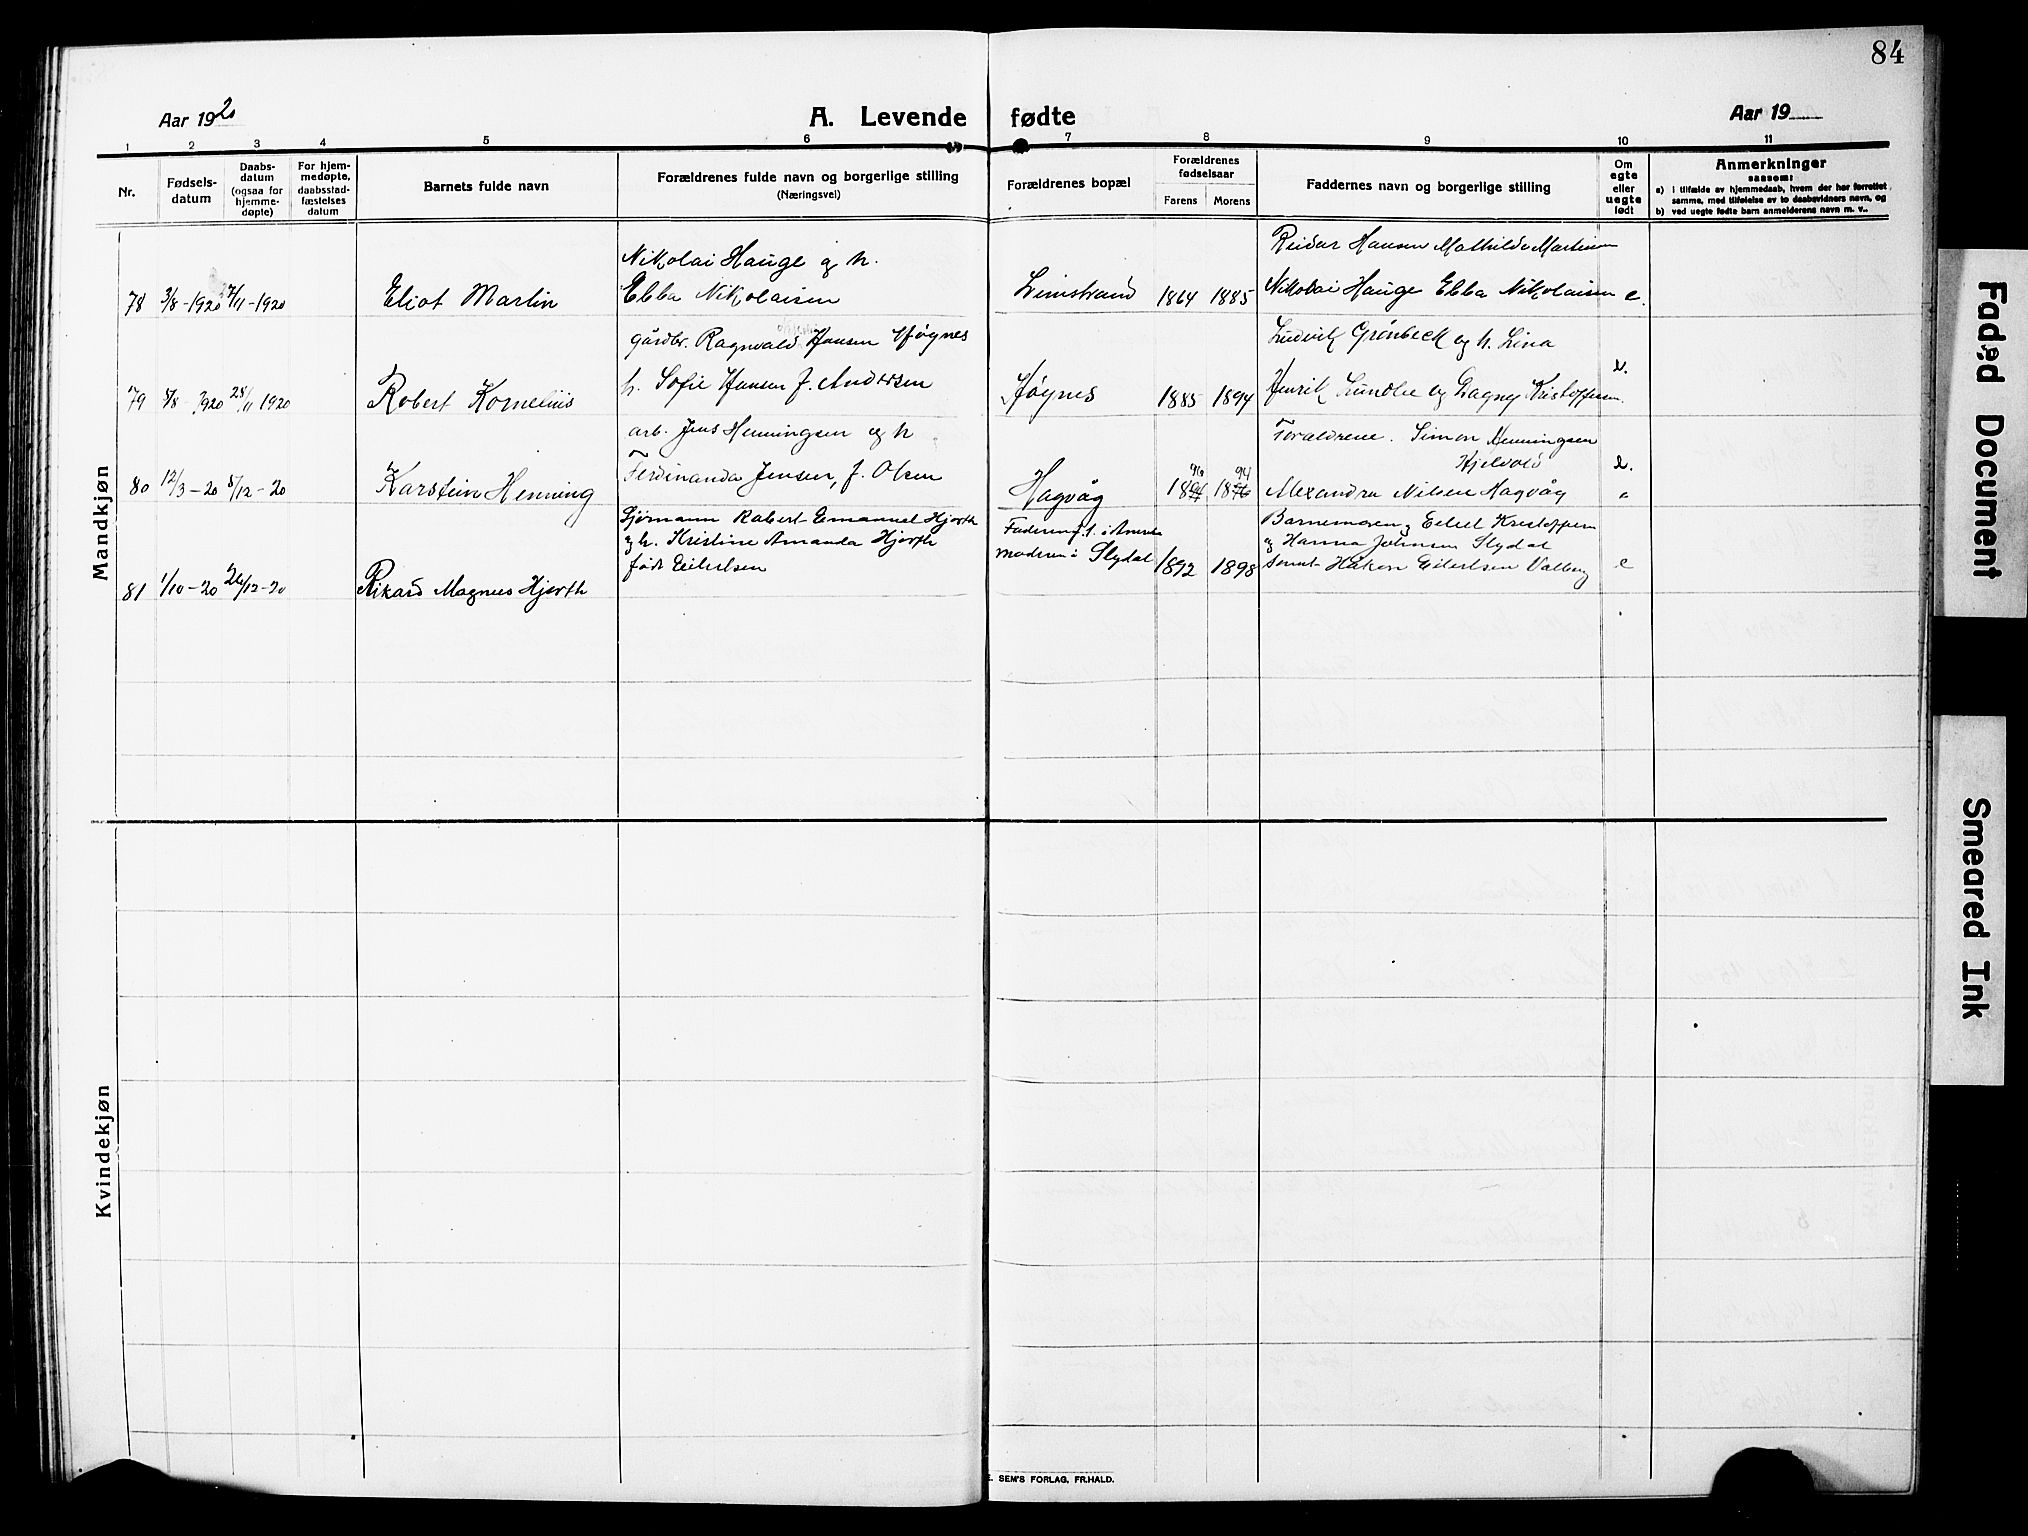 84
Aar 1920
A. Levende fødte
Aar 19
1 2 3 4 5 6 7 8 9 10 11
Nr.
Fødsels-
datum
Daabs-
datum
(ogsaa for
hjemme-
døpte)
For hjem-
medøpte,
daabsstad-
fæstelses
datum
Barnets fulde navn
Forældrenes fulde navn og borgerlige stilling
(Næringsvei)
Forældrenes bopæl
Forældrenes
fødselsaar
Farens Morens
Faddernes navn og borgerlige stilling
Om
egte
eller
uegte
født
Anmerkninger
saasom:
a) i tilfælde av hjemmedaab, hvem der har forrettet
samme, med tilføielse av to daabsvidners navn, og
b) ved uegte fødte barn anmelderens navn m. v..
Mandkjøn
Nikolai Hauge og h.
Reidar Hansen Mathilde
78 3/8-1920 7/11-1920 Eliot Martin Ebba Nikolaisen 1864 1885 Nikolai Hauge Ebba Nikolaisen e.
gårdbr. Ragnvald Hansen
Ludvik Grönbeck og h. Lina
79 8/8-1920 28/11 1920 Robert Kornelius h. Sofie Hansen f. Andersen 1885 1894 Henrik og Dagny Kristoffersen
arb. Jens Henningsen og h
Forældrene. Simon Henningsen
Kjelvold
80 12/3-20 5/12-20 Karstein Henning Ferdinanda Jensen, f. Olsen Hagvåg 1896 1894 Alexandra Nilsen Hagvåg
Sjömann Robert Emanuel Hjorth
og h. Kristine Amanda Hjorth
født Eilertsen
Faderen f. t. i
moderen i Slydal
Barnemoren, Kristoffersen
og Hanna Johnsen Slydal
samt Håkon Eilertsen Valberg
81 1/10-20 26/12-20 Rikard Magnus Hjorth 1892 1898 e
Kvindekjøn
SEM'S FORLAG, FR.HALD.
Faded Document
Smeared Ink